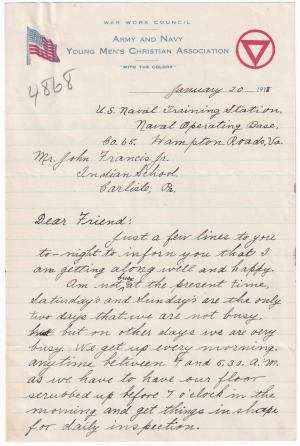 WAR WORK COUNCIL
ARMY AND NAVY
YOUNG MEN'S CHRISTIAN ASSOCIATION
"WITH THE COLORS"
4868
January 20 1918
U.S. Naval Training Station,
Naval Operating Base,
Co. 65. Hampton Roads, Va.
Mr. John Francis Jr.
Indian School,
Carlisle, Pa.
Dear Friend:
Just a few lines to you
to-night to inform you that I
am getting along well and happy.
Am not busy at the present time,
Saturday's and Sunday's are the only
two days that we are not busy,
but but on other days we are very
busy. We get up every morning
anytime between 4 and 5,30. A.M.
as we have to have our floor
scrubbed up before 7 o'clock in the
morning and get things in shape
for daily inspection.